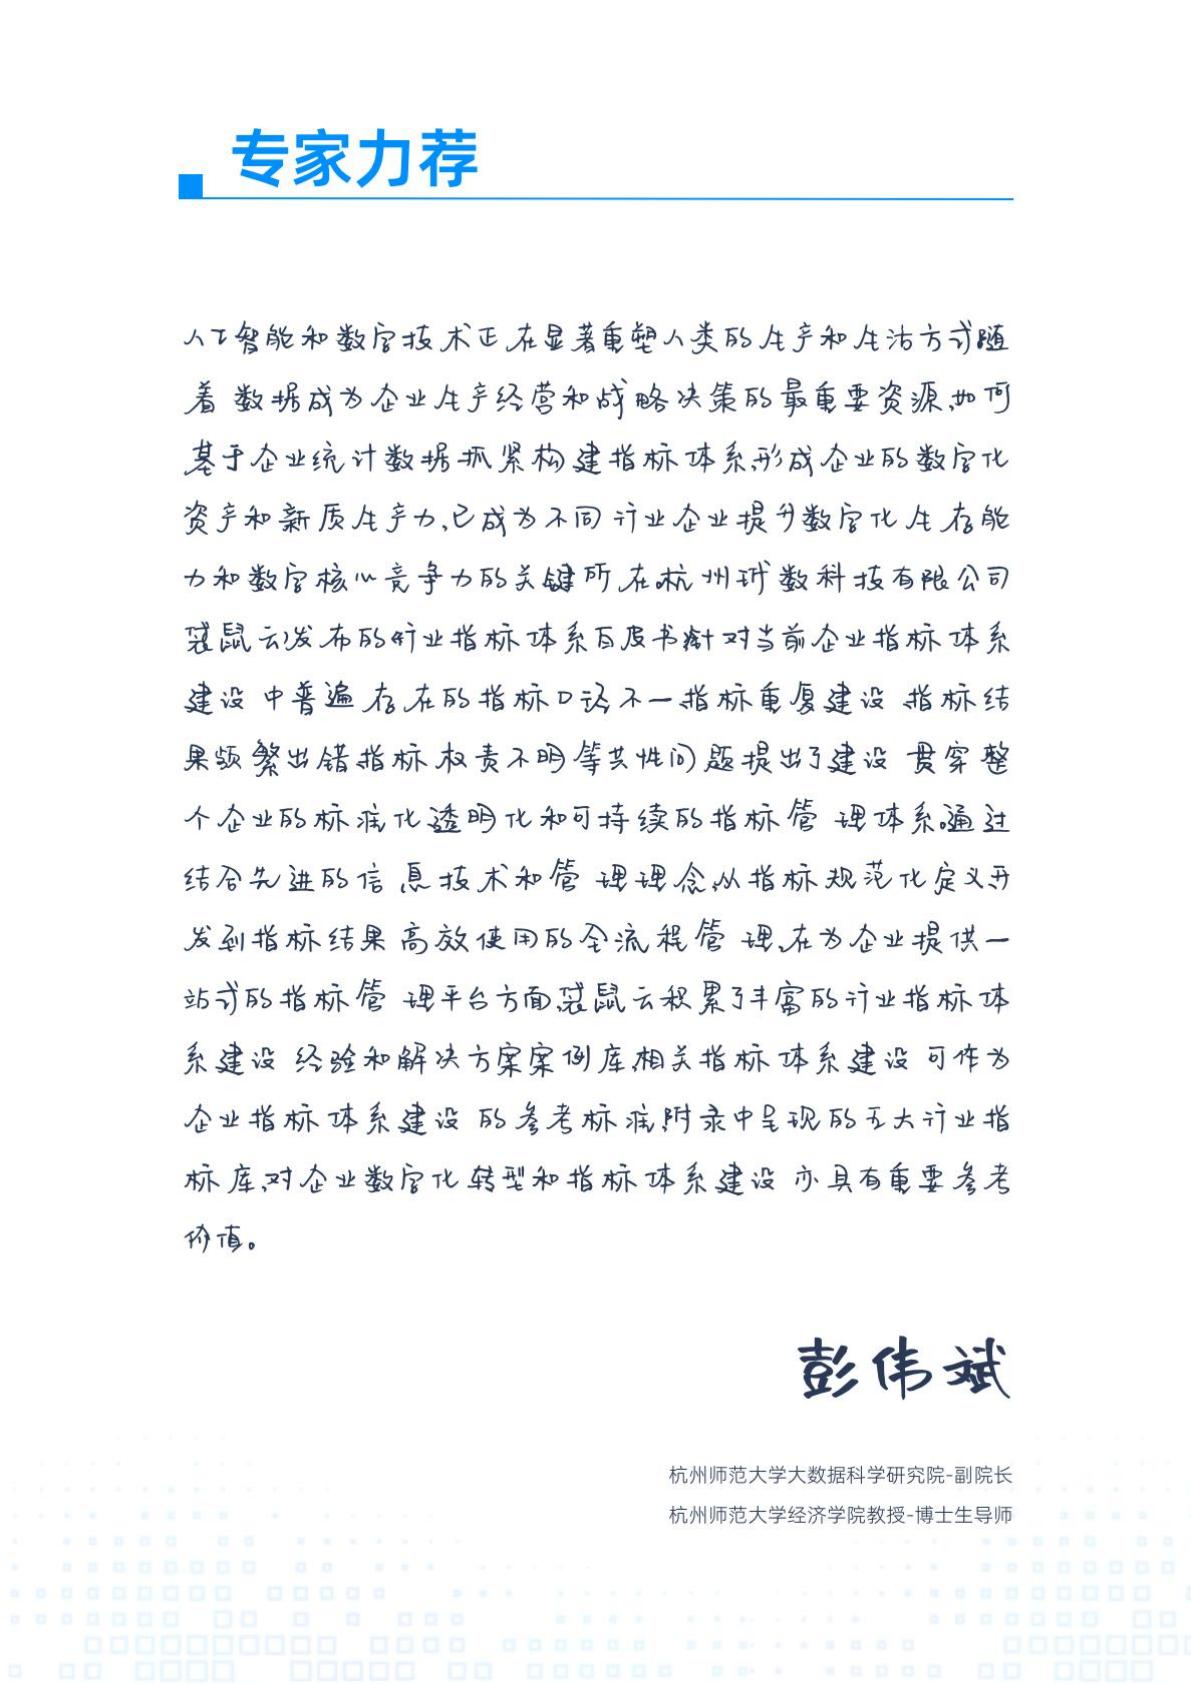 专家力荐
人工智能和数字技术正在显著重塑人类的生产和生活方式,随
着数据成为企业生产经营和战略决策的最重要资源,如何
基于企业统计数据抓紧构建指标体系,形成企业的数字化
资产和新质生产力,已成为不同行业企业提升数字化生存能
力和数字核心竞争力的关键所在。杭州玳数科技有限公司
袋鼠云发布的《行业指标体系白皮书》,针对当前企业指标体系
建设中普遍存在的指标口径不一、指标重复建设、指标结
果频繁出错、指标权责不明等共性问题,提出了建设贯穿整
个企业的标准化、透明化和可持续的指标管理体系。通过
结合先进的信息技术和管理理念,从指标规范化定义、开
发到指标结果高效使用的全流程管理,在为企业提供一
站式的指标管理平台方面,袋鼠云积累了丰富的行业指标体
系建设经验和解决方案案例库,相关指标体系建设可作为
企业指标体系建设的参考标准,附录中呈现的五大行业指
标库,对企业数字化转型和指标体系建设亦具有重要参考
价值。
彭伟斌
杭州师范大学大数据科学研究院-副院长
杭州师范大学经济学院教授-博士生导师